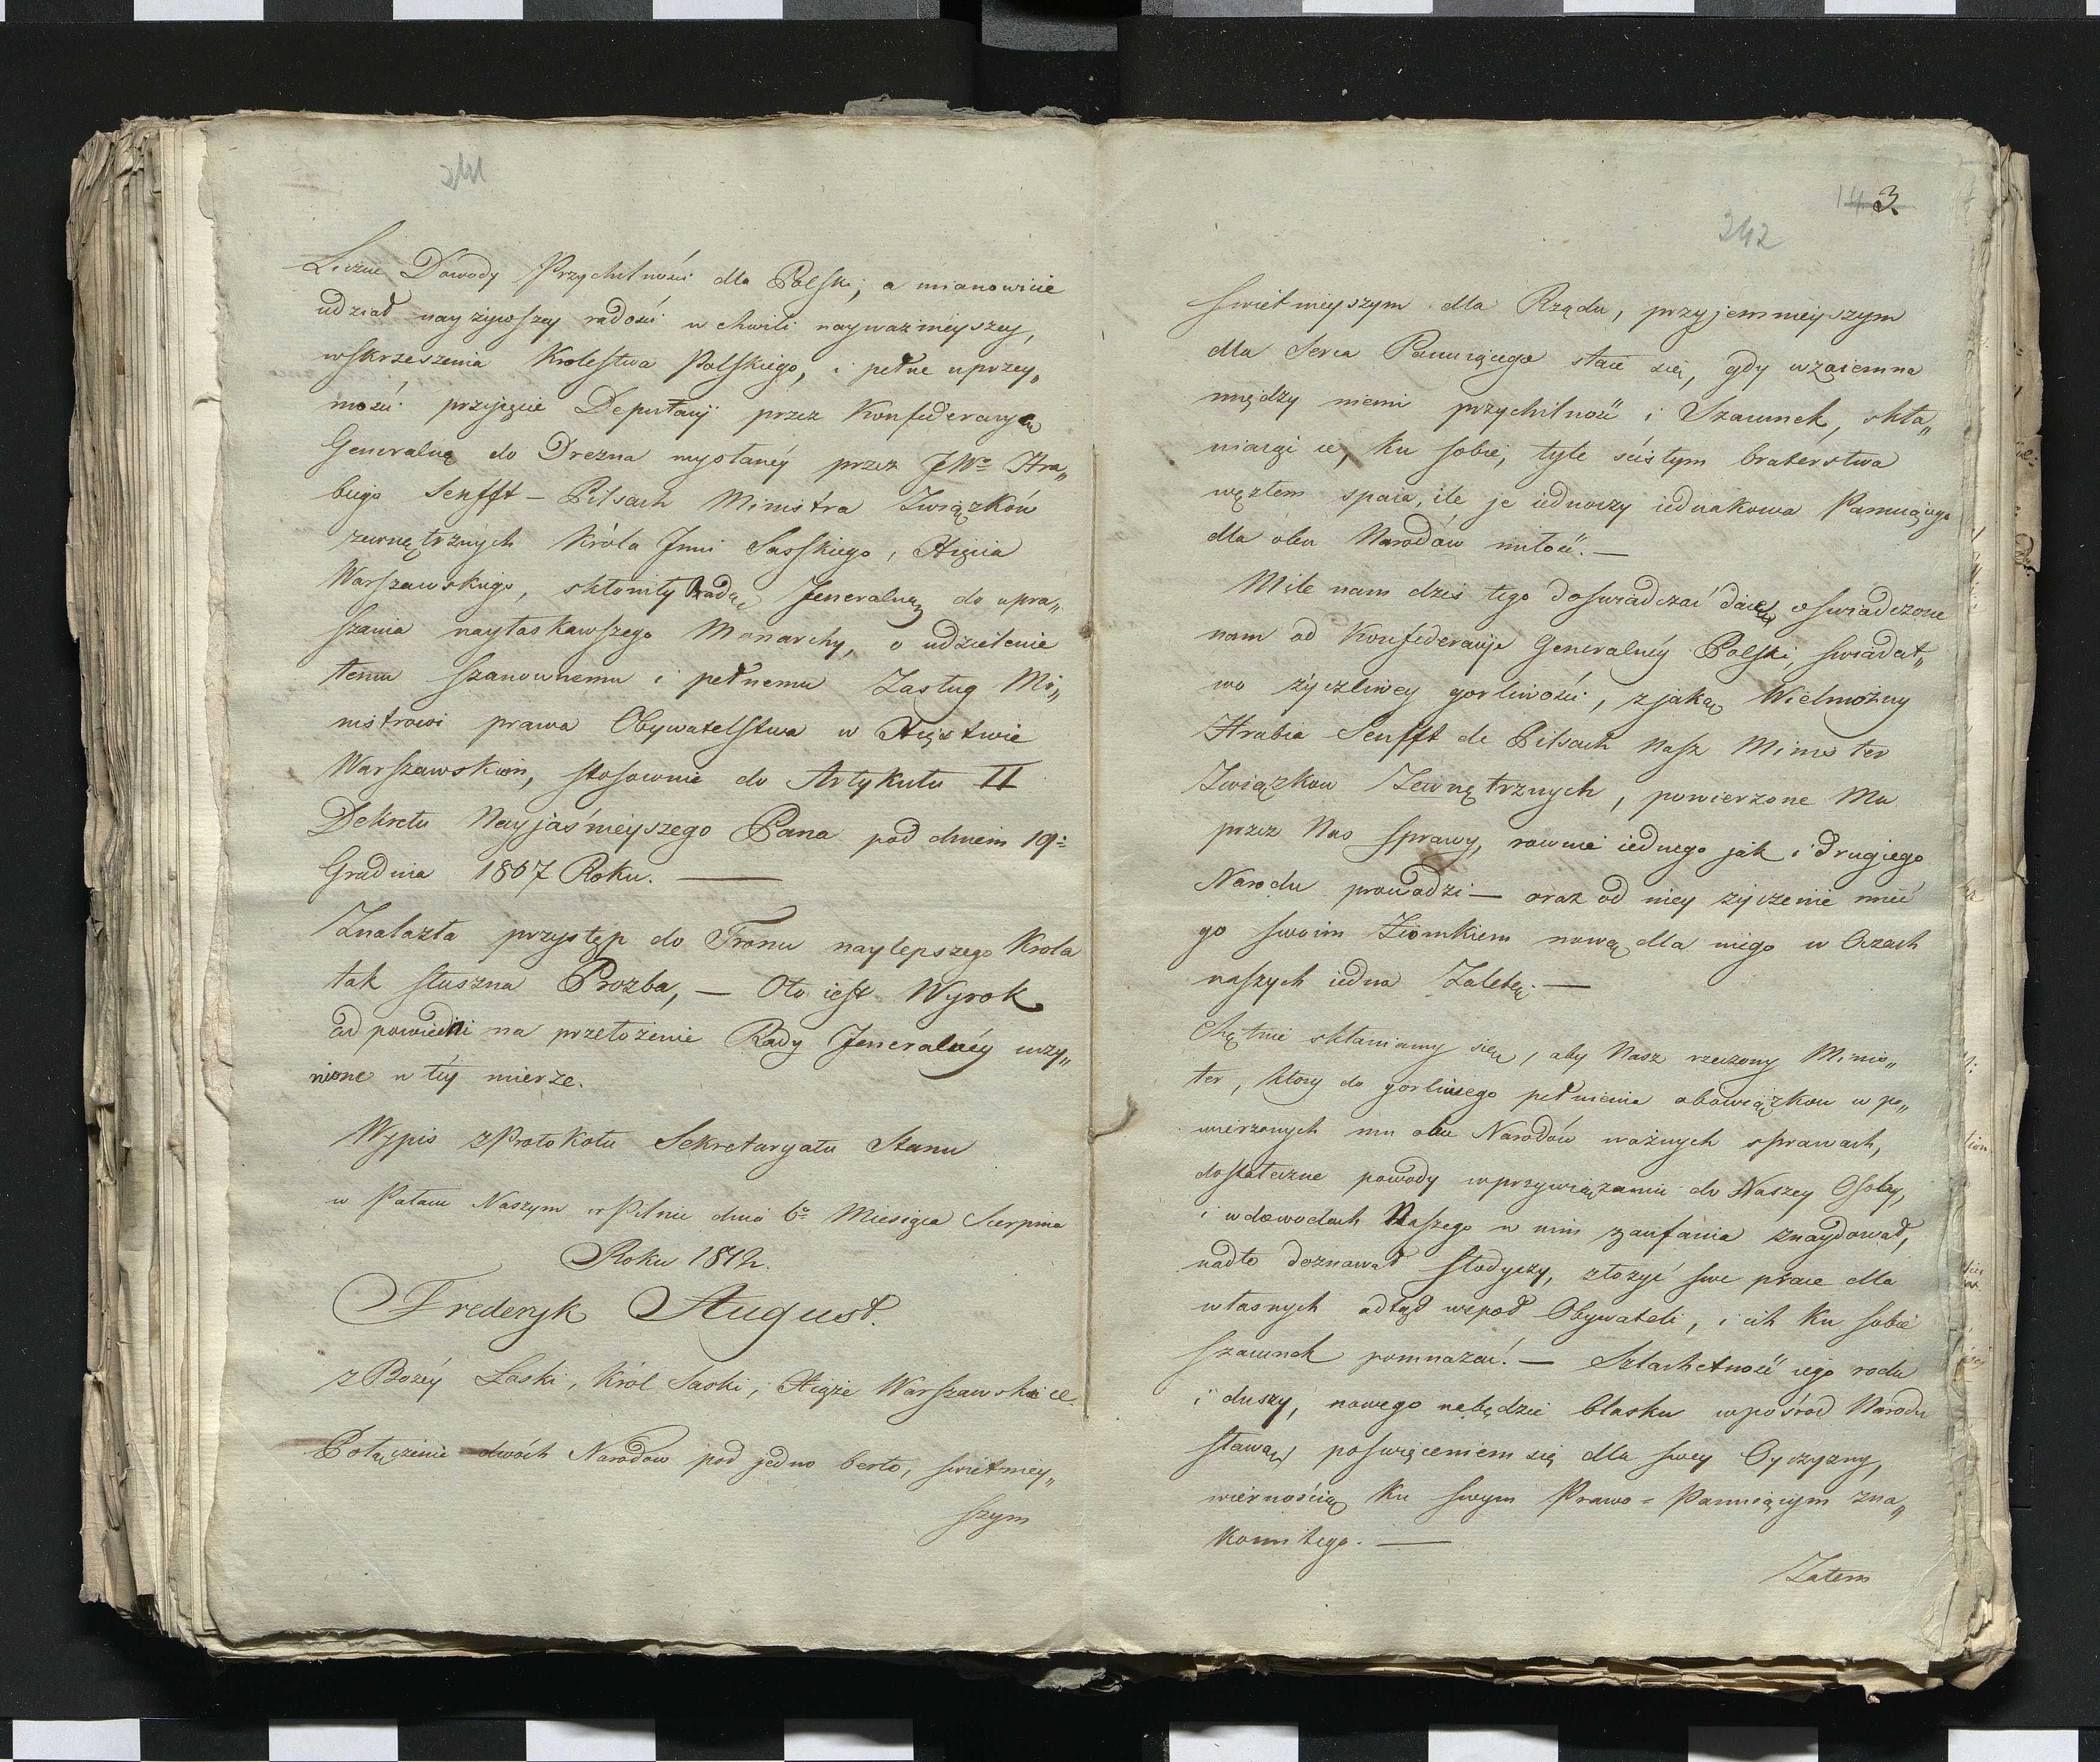 241
Liczne Dowody Przychilności dla Polski, a mianowicie
udział nayżywszey radości w chwili nayważnieyszey,
wskrzeszenia Krolestwa Polskiego, i pełne uprzey„
mości przyięcie Deputacyi przez Konfederacyą
Generalną do Drezna wysłanéy przez JWo Hra„
biego Senfft - Pilsach Ministra Związków
zewnętrznych Króla Jmci Saskiego, Xięcia
Warszawskiego, skłoniły Radę Jeneralną do upra„
szania nayłaskawszego Monarchy, o udzielenie
temu szanownemu i pełnemu Zasług Mi„
nistrowi prawa Obywatelstwa w Xięstwie
Warszawskim, stosownie do Artykułu II
Dekretu Nayjaśnieyszego Pana pod dniem 19=
Grudnia 1807 Roku. —
Znalazła przystęp do Tronu naylepszego Krola
tak słuszna Prozba, — Oto iest Wyrok
odpowiedni na przełożenie Rady Jeneralnéy uczy„
nione w téy mierze.
Wypis z Protokołu Sekretaryatu Stanu
w Pałacu Naszym w Pilnic dnia 6o Miesiąca Sierpnia
Roku 1812.
Frederyk August.
z Bożéy Łaski, Król Saski, Xiąże Warszawski &c.
Połączenie dwóch Narodow pod jedno berło, świetniey„
szym
143.
242
swietnieyszym dla Rządu, przyjemnieyszym
dla Serca Panuiącego staie się, gdy wzaiemna
między niemi przychilność i Szacunek, skła„
niaiąc ie, ku sobie, tyle ścisłym braterstwa
węzłem spaia, ile je iednoczy iednakowa Panuiącego
dla obu Narodów miłość. —
Miło nam dzis tego doswiadczać daie oswiadczone
nam od Konfederacyi Generalnéy Polski, swiadect„
wo życzliwey gorliwości, z jaką Wielmożny
Hrabia Senfft de Pilsach Nasz Minister
Związkow Zewnętrznych, powierzone Mu
przez Nas sprawy, rownie iednego jak i drugiego
Narodu prowadzi — oraz od niey życzenie mieć
go swoim Ziomkiem nową dla niego w Oczach
naszych iedna Zaletę. —
Chętnie skłaniamy się, aby Nasz rzeczony Minis„
ter, ktory do gorliwego pełnienia obowiązkow w po„
wierzonych mu obu Narodów ważnych sprawach,
dostateczne powody w przywiązaniu do Naszey Osoby,
i w dowodach Naszego w nim zaufania znaydował,
nadto doznawał słodyczy, złożyć swe prace dla
własnych odtąd wspoł Obywateli, i ich ku sobie
szacunek pomnażać. — Szlachetność iego rodu
i duszy, nowego nabędzie blasku wpośrod Narodu
sławą, poswięceniem się dla swey Oyczyzny,
wiernością ku swym Prawo = Panuiącym zna„
komitego. —
Zatem